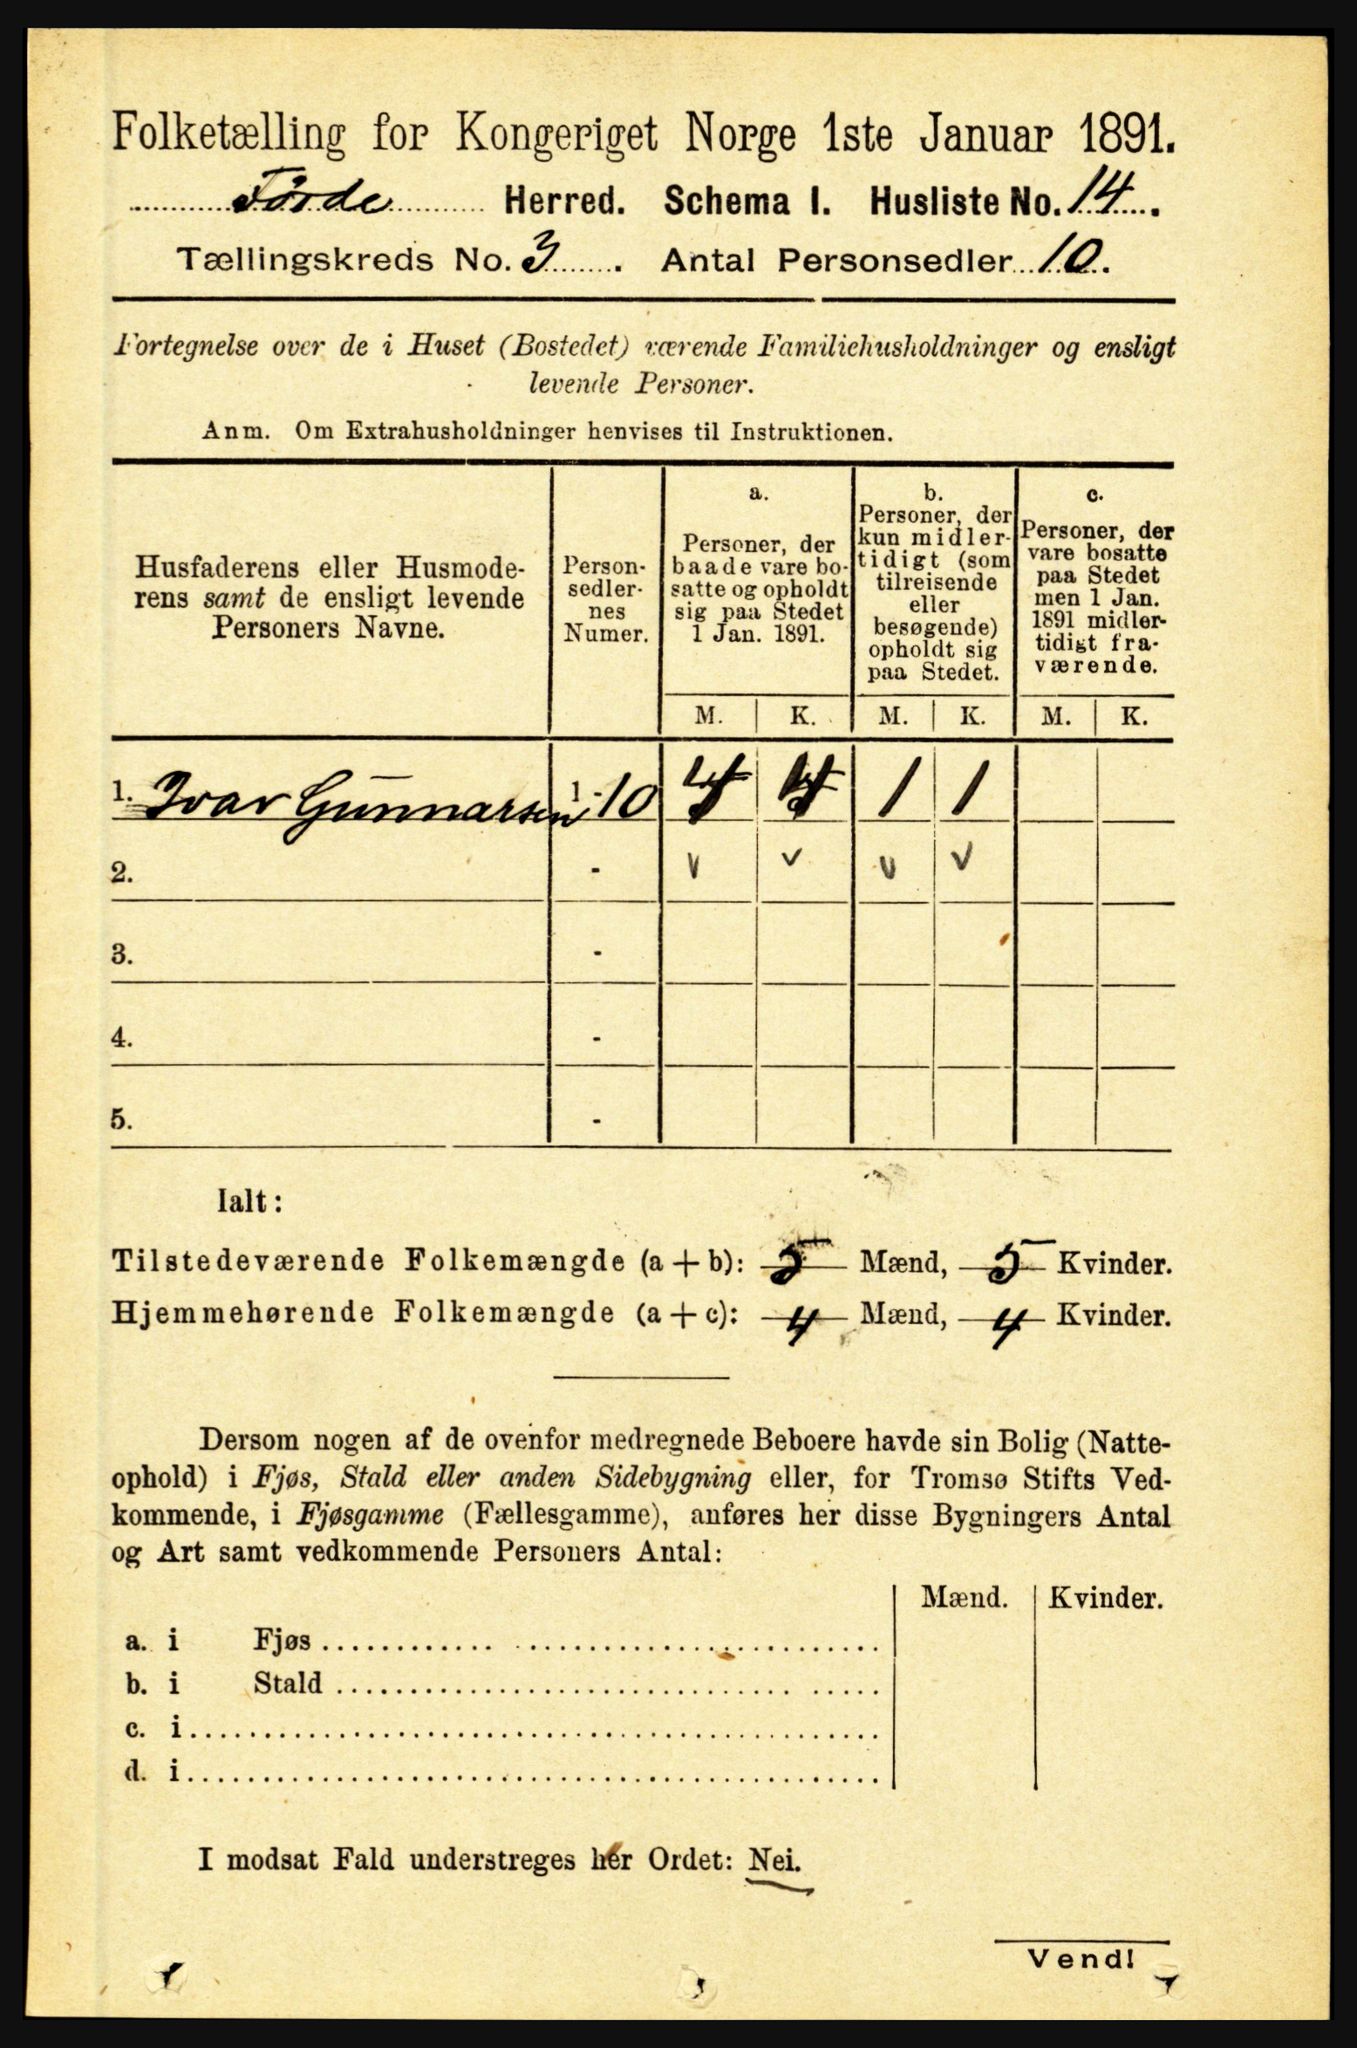 Folketælling for Kongeriget Norge 1ste Januar 1891.
Førde Herred. Schema I. Husliste No. 14.
Tællingskreds No. 3. Antal Personsedler 10.
Fortegnelse over de i Huset (Bostedet) værende Familiehusholdninger og ensligt
levende Personer.
Anm. Om Extrahusholdninger henvises til Instruktionen.
Husfaderens eller Husmode-
rens samt de ensligt levende
Personers Navne.
Person-
sedler-
nes
Numer.
a.
Personer, der
baade vare bo-
satte og opholdt
sig paa Stedet
1 Jan. 1891.
b.
Personer, der
kun midler-
tidigt (som
tilreisende
eller
besøgende)
opholdt sig
paa Stedet.
c.
Personer, der
vare bosatte
paa Stedet
men 1 Jan.
1891 midler-
tidigt fra-
værende.
M. K. M. K. M. K.
1. Ivar Gunnarsen 1-10 4 4 1 1
2. -
3. -
4. -
5. -
Ialt:
Tilstedeværende Folkemængde (a + b): 5 Mænd, 5 Kvinder.
Hjemmehørende Folkemængde (a + c): 4 Mænd, 4 Kvinder.
Dersom nogen af de ovenfor medregnede Beboere havde sin Bolig (Natte-
ophold) i Fjøs, Stald eller anden Sidebygning eller, for Tromsø Stifts Ved-
kommende, i Fjøsgamme (Fællesgamme), anføres her disse Bygningers Antal
og Art samt vedkommende Personers Antal:
Mænd. Kvinder.
a. i Fjøs
b. i Stald
c. i
d. i
I modsat Fald understreges her Ordet: Nei.
Vend!